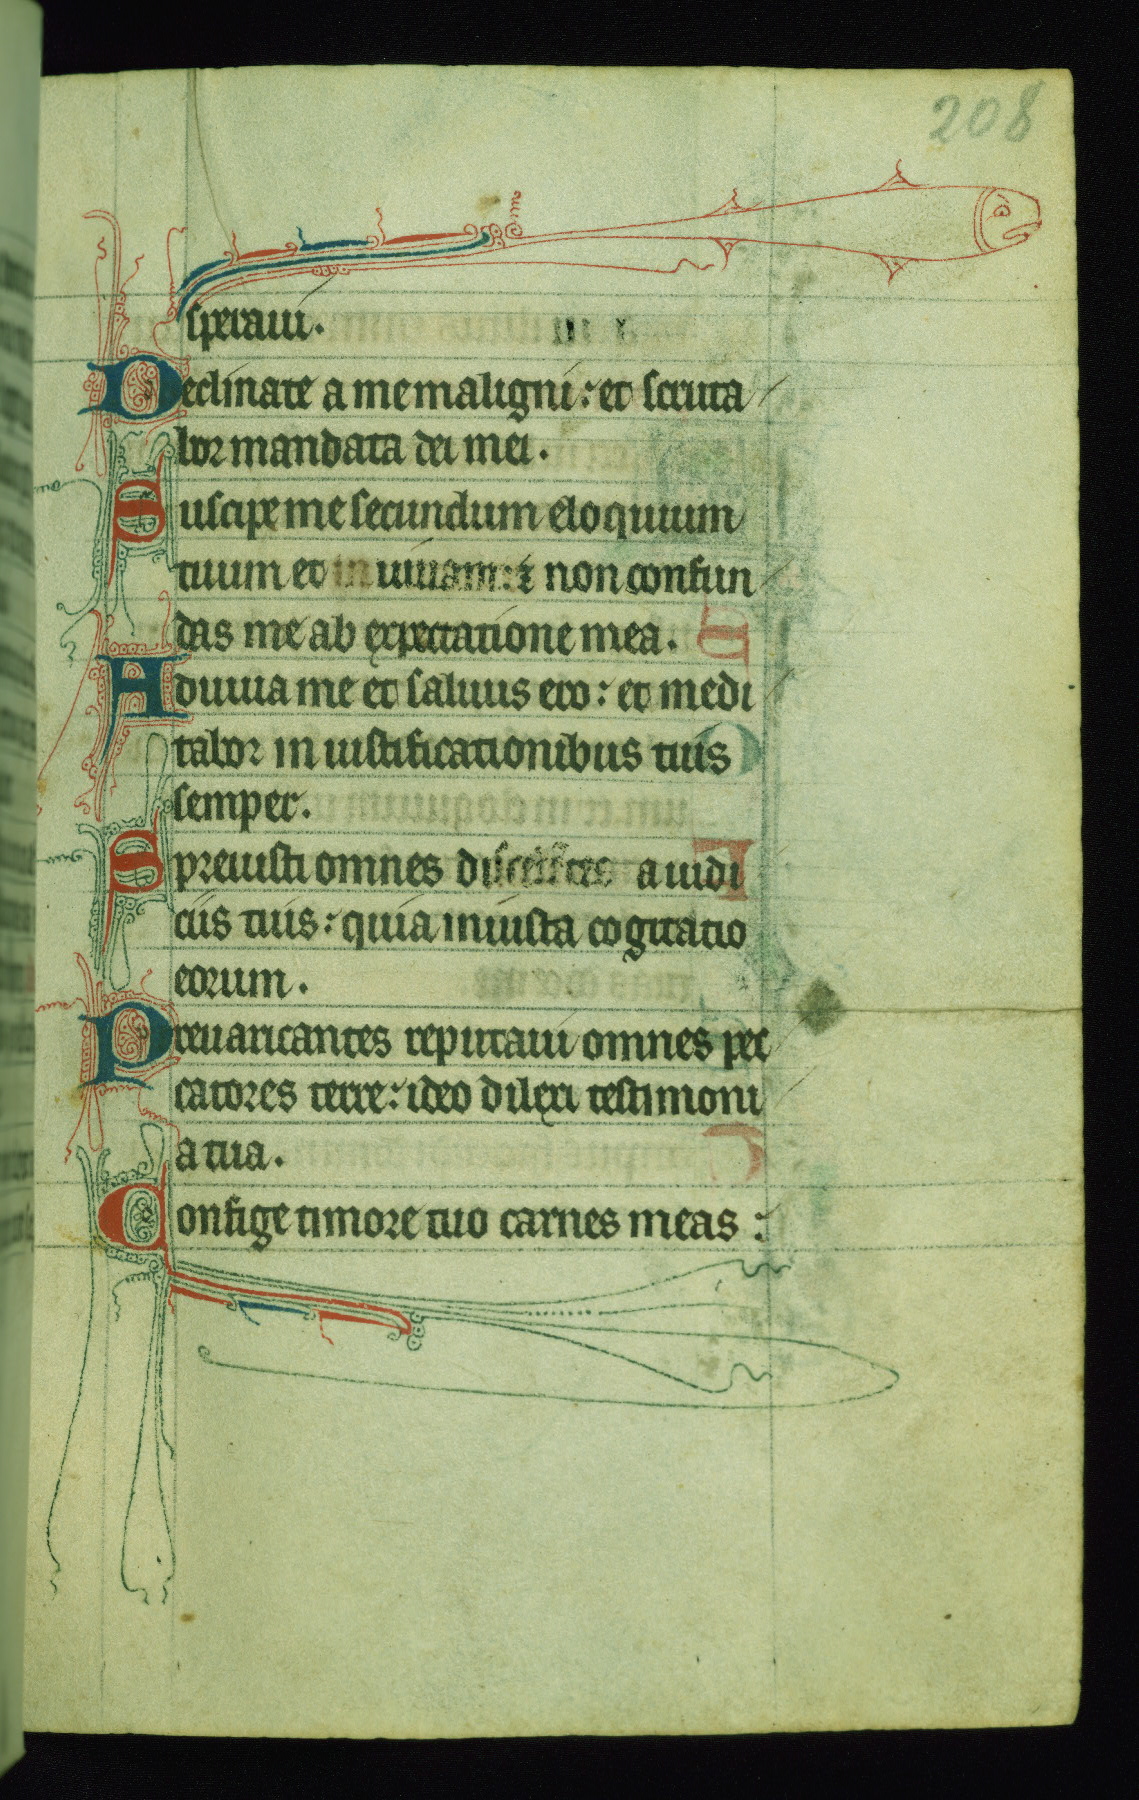 208
speraui.
Declinate a me maligni: et scruta
bor mandata dei mei.
Suscipe me secundum eloquium
tuum et uiuam: ⁊ non confun
das me ab expectatione mea.
Adiuua me et saluus ero: et medi
tabor in iustificationibus tuis
semper.
Spreuisti omnes a iudi
ciis tuis: quia iniusta cogitatio
eorum.
Preuaricantes reputaui omnes pec
catores terre: ideo dilexi testimoni
a tua.
Confige timore tuo carnes meas: